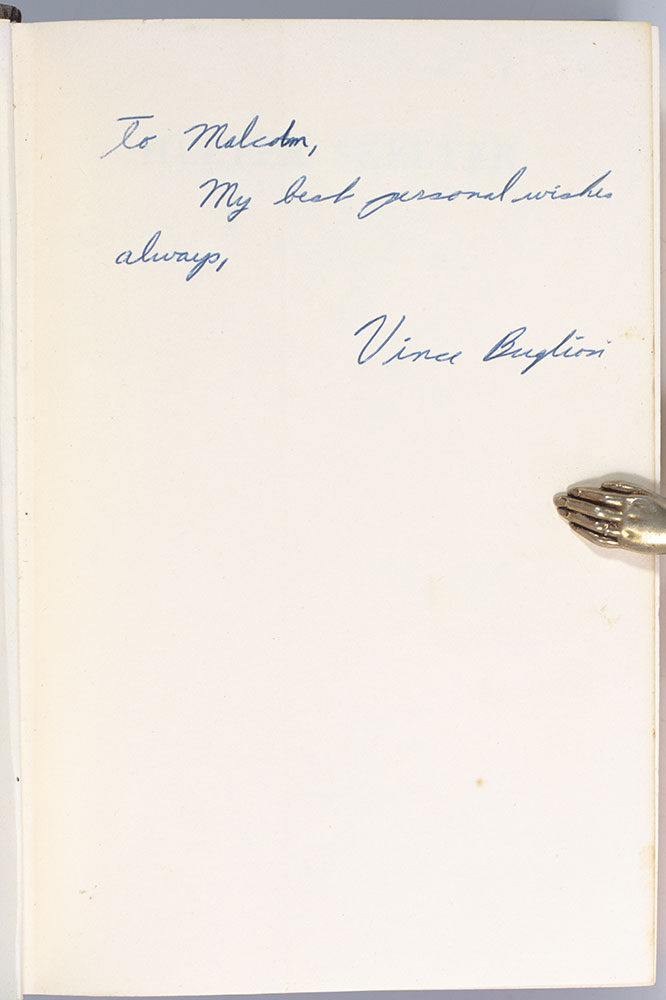 To Malcolm,
My best personal wishes
always,
Vince Bugliosi